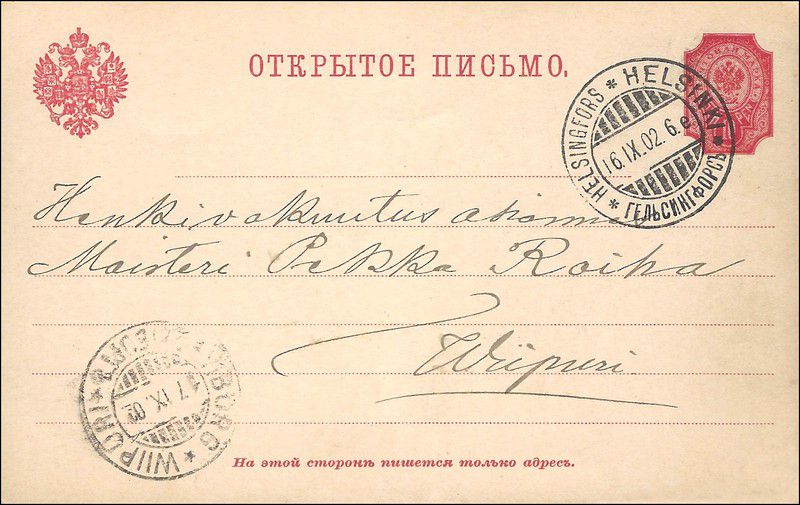 ОТКРЫТОЕ ПИСЬМО.
HELSINKI * ГЕЛЬСИНГФОРСЪ * HELSINGFORS *
16.IX.02. 6.e.
Henkivakuutus asiamies
Maisteri Pekka Roiha
Wiipuri
WIBORG * WIIPURI *
7.IX.02
На этой сторонѣ пишется только адресъ.